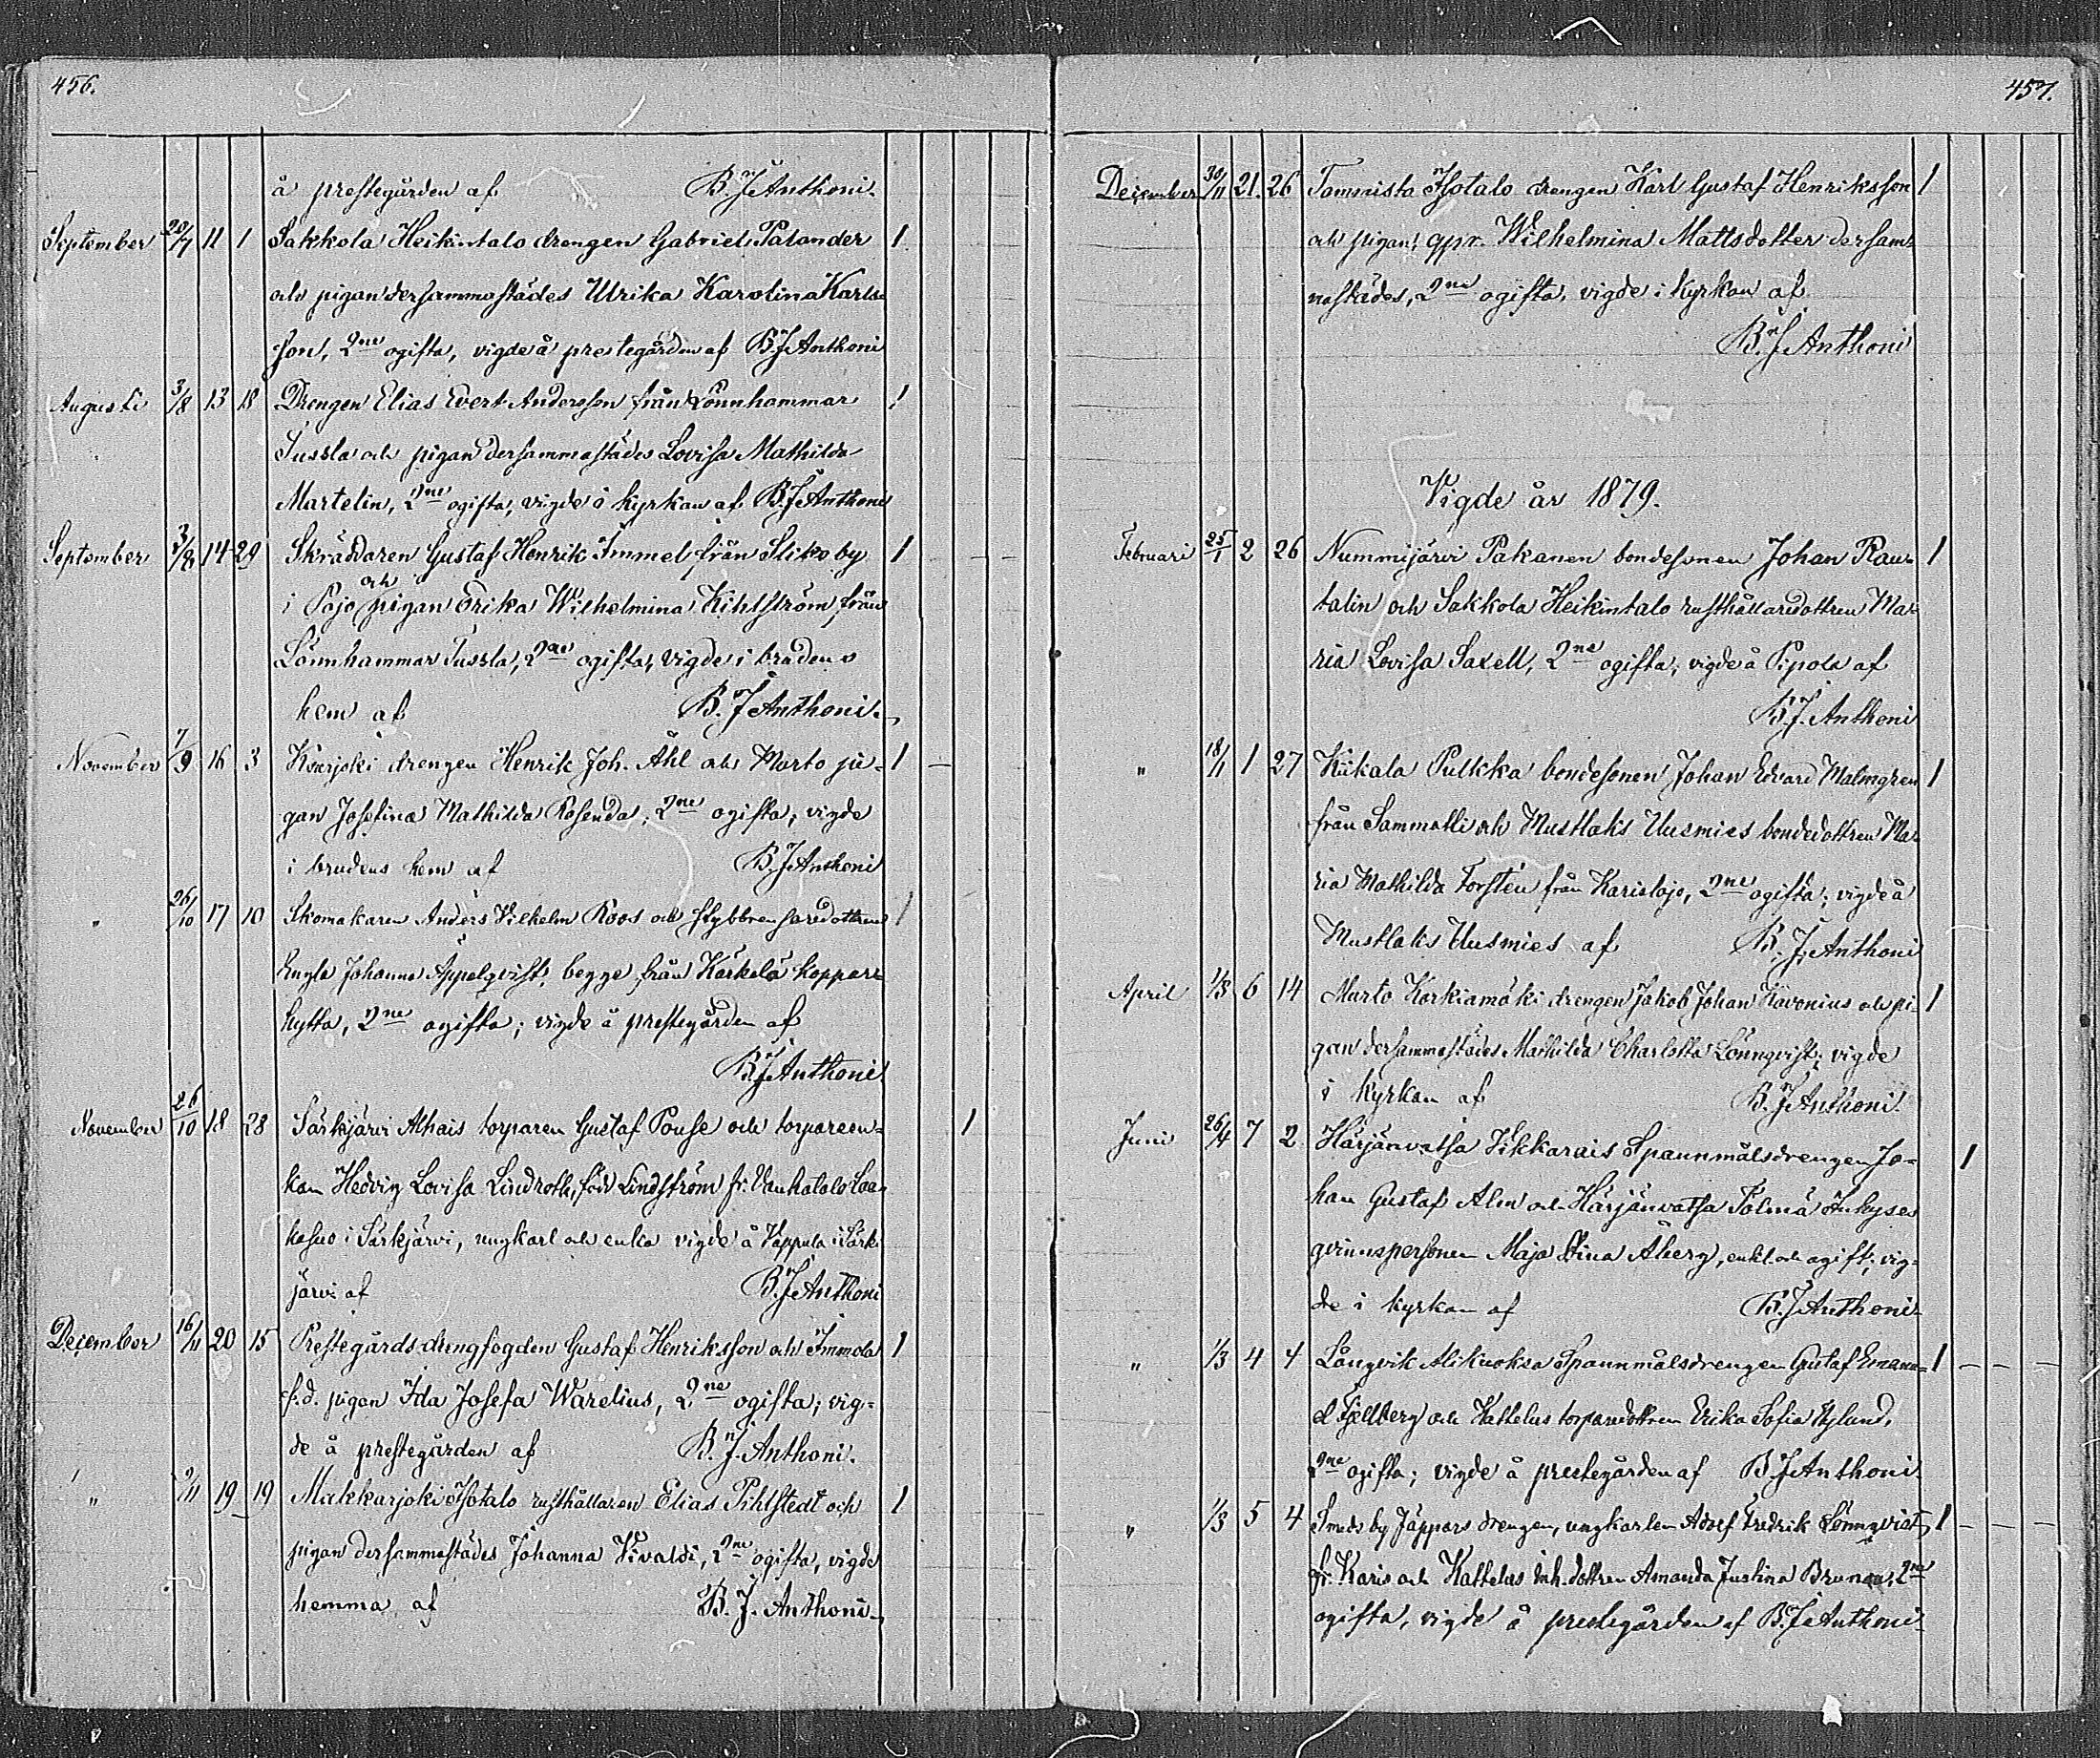 456.
å prestegården af B. J. Anthoni.
September 20/7 11 1 Sakkola Heikintalo drengen Gabriel Palander 1
och pigan dersammastädes Ulrika Karolina Karls-
son, 2ne ogifta, vigde å prestegården af B. J. Anthoni
Augusti 3/8 13 18 Drengen Elias Evert Andersson från Lönnhammar 1
Tussla och pigan dersammastädes Lovisa Mathilda
Martelin, 2ne ogifta, vigde i kyrkan af B. J. Anthoni
September 3/8 14 29 Skräddaren Gustaf Henrik Immel från Sliko by 1
i Pojo och pigan Erika Wilhelmina Kihlström, från
Lönnhammar Tussla, 2ne ogifta, vigde i brudens
hem af B. J. Anthoni.
November 7/9 16 3 Koarjoki drengen Henrik Joh. Åhl och Murto pi- 1
gan Josefina Mathilda Rosenda, 2ne ogifta, vigde
i brudens hem af B. J. Anthoni
" 26/10 17 10 Skomakaren Anders Vilhelm Roos och stybbrensaredottren 1
Engla Johanna Appelqvist, begge från Kärkelä koppar-
hytta, 2ne ogifta; vigde å prestegården af
B. J. Anthoni
November 26/10 18 28 Särkjärvi Alhais torparen Gustaf Pouse och torpareen- 1
kan Hedvig Lovisa Lindroth, född Lindström fr. Vanhatalo Laa-
kasuo i Särkjärvi, ungkarl och enka vigde å Vappula i Särk-
järvi af B. J. Anthoni
December 16/11 20 15 Prestegårds drengfogden Gustaf Henriksson och Immola 1
f.d. pigan Ida Josefa Warelius, 2ne ogifta; vig-
de å prestegården af B. J. Anthoni.
" 9/11 19 19 Makkarjoki Isotalo rusthållaren Elias Pihlstedt och 1
pigan dersammastädes Johanna Vivaldi, 2ne ogifta, vigde
hemma af B. J. Anthoni
457.
December 30/11 21. 26 Tammisto Isotalo drengen Karl Gustaf Henriksson 1
och pigan, qpr. Wilhelmina Mattsdotter dersam-
mastädes, 2ne ogifta, vigde i kyrkan af
B. J. Anthoni
Vigde år 1879.
Februari 25/1 2 26 Nummijärvi Pakanen bondesonen Johan Rau- 1
talin och Sakkola Heikintalo rusthållaredottren Ma-
ria Lovisa Saxell, 2ne ogifta, vigde å Pipola af
B. J. Anthoni
" 18/1 1 27 Kiikala Pulkka bondesonen Johan Edvard Malmgren 1
från Sammatti och Mustlaks Uusmies bondedottren Ma-
ria Mathilda Forstén från Karislojo, 2ne ogifta; vigde å
Mustlaks Uusmies af B. J. Anthoni
April 1/3 6 14 Murto Korkiamäki drengen Jakob Johan Kavonius och pi- 1
gan dersammastädes Mathilda Charlotta Lönnqvist; vigde
i kyrkan af B. J. Anthoni.
Juni 26/4 7 2 Härjänvatsa Vikkarais Spannmålsdrengen Jo- 1
han Gustaf Alm och Härjänvatsa Tolmä Inhyses
qvinnspersonen Maja Stina Åberg, enkl. och ogift, vig-
de i kyrkan af B. J. Anthoni
" 1/3 4 4 Långvik Alikuoksa Spannmålsdrengen Gustaf Emanu- 1
el Fjellberg och Kattelus torparedottren Erika Sofia Nylund,
2ne ogifta; vigde å prestegården af B. J. Anthoni
" 1/3 5 4 Smeds by Jäppars drengen, ungkarlen Adolf Fredrik Lönnqvist, 1
fr. Karis och Kattelus inh. dottren Amanda Justina Brunou, 2ne
ogifta, vigde å prestegården af B. J. Anthoni